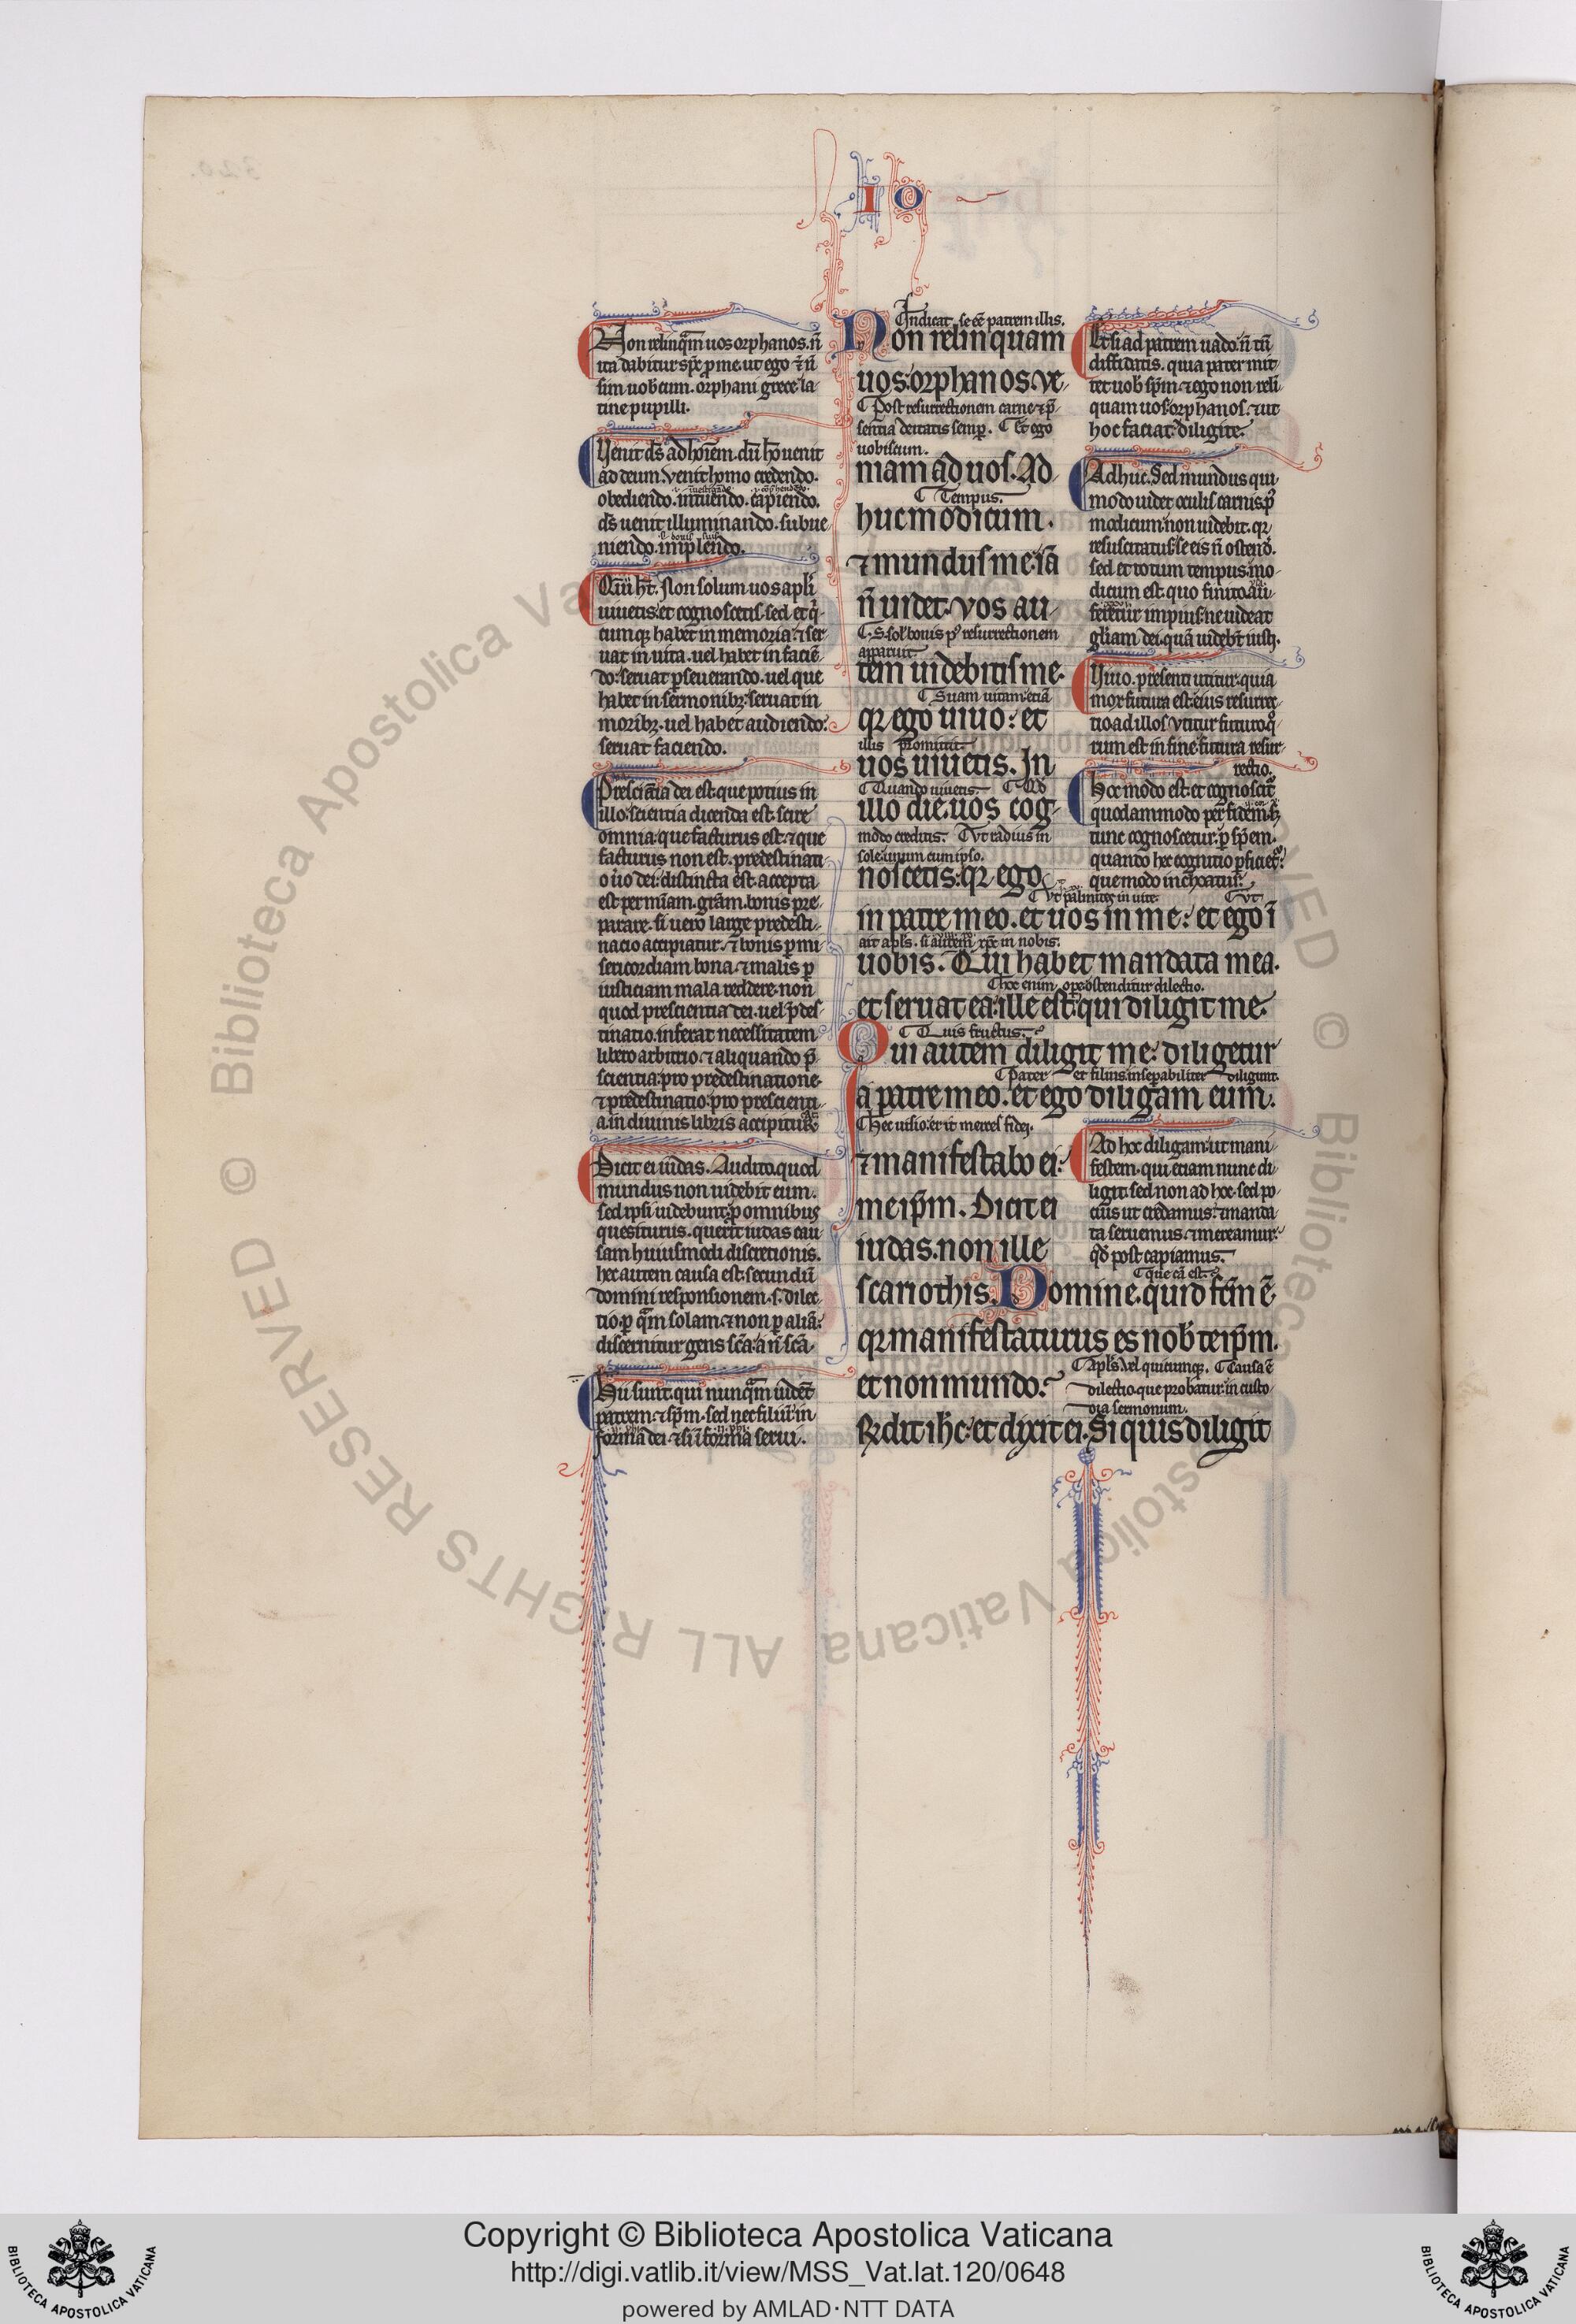 IO
Non relinq̄m uos orphanos. n̄
ita dabitur sp̄c ꝑ me. ut ego ⁊ n̄
sim uobcum. orphani grece. la-
tine pupilli.
Venit d̄s ad hoīem. dū hō uenit
ad deum. venit homo credendo.
obediendo. intuendo. capiendo.
d̄s uenit illuminando. subue-
niendo. implendo.
Qui h̄t. Non solum uos apl̄i
uiuetis. et cognoscetis. sed et q̇-
cumqꝫ habet in memoria. ⁊ ser-
uat in uita. uel habet in faciē-
do. seruat ꝑseuerando. uel que
habet in sermonibꝫ. seruat in
moribꝫ. uel habet audiendo.
seruat faciendo.
Presciātia dei est. que potius in
illo. scientia dicenda est. scire
omnia. que facturus est. ⁊ que
facturus non est. predestinati-
o ūo dei. distincta est. accepta
est per mīam. grām. bonis pre-
parare. si uero large predesti-
nacio accipiatur. ⁊ bonis ꝑ mi-
sericordiam bona. ⁊ malis ꝑ
iusticiam mala reddere. non
quod prescientia dei. uel p̄des-
tinatio. inferat necessitatem
libero arbitrio. ⁊ aliquando p̄-
scientia. pro predestinatione.
⁊ predestinatio. pro prescienti-
a. in diuinis libris accipitur.
Dicit ei iudas. Audito. quod
mundus non uidebit eum.
sed ipsi uidebunt. ꝑ omnibus
quesiturus. querit iudas cau-
sam huiusmodi discretionis.
hec autem causa est. secundū
domini responsionem. s. dilec-
tio. ꝑ q̄m solam. ⁊ non ꝑ aliā.
discernitur gens sc̄a. a n̄ sc̄a.
Hii sunt. qui nunq̄m uidēt
patrem. ⁊ sp̄m. sed nec filiū. in
forma dei. ⁊ si ī forma serui.
Indicat. se eē patrem illis.
Non relinquam
uos. orphanos. ve-
Post resurrectionem carne. ⁊ p̄-
sentia deitatis semꝑ. Et ego
uobiscum.
niam ad uos. Ad-
Tempus.
huc modicum.
⁊ mundus me. iā
n̄ uidet. vos au-
.S. sol' bonis pꝰ resurrectionem
apparuit.
tem uidebitis me.
Suam uitam. etiā
qꝛ ego uiuo. et
illis promittit.
uos uiuetis. In
Quando uiuetis. Qd̄
illo die. uos cog-
modo creditis. Vt radius in
sole. unum cum ipso.
noscetis. qꝛ ego
Vt palmites in uite. Vt
in patre meo. et uos in me. et ego ī
ait apl̄s. si autem xp̄c in nobis.
uobis. Qui habet mandata mea.
Hoc enim. oꝑe ostenditur dilectio.
et seruat ea. ille est. qui diligit me.
Quis fructus.
Qui autem diligit me. diligetur
Pater et filius inseꝑabiliter diligunt.
a patre meo. et ego diligam eum.
Hec uisio. erit merces fidei.
⁊ manifestabo ei.
me ip̄m. Dicit ei
iudas. non ille
scariothis. Domine. quid fc̄m ē.
que cā est.
qꝛ manifestaturus es nob̄ teip̄m.
Apl̄s. vel quicumqꝫ. Causa ē
et non mundo.
dilectio. que probatur. in custo-
dia sermonum.
R̄dit ih̄c. et dixit ei. Si quis diligit
Et si ad patrem uado. n̄ tn̄
diffidatis. quia pater mit-
tet uob̄ sp̄m. ⁊ ego non reli-
quam uos orphanos. ⁊ ut
hoc faciat. diligite.
Adhuc. Sed mundus qui
modo uidet oculis carnis. pꝰ
modicum. non uidebit. qꝛ
resuscitatus. se eis n̄ ostend̄.
sed et totum tempus. mo-
dicum est. quo finito. au-
feretur impius. ne uideat
gl̄iam dei. quā uidebt̄ iusti.
Viuo. presenti utitur. quia
mox futura est. eius resurrec-
tio. ad illos vtitur futuro. q̄-
rum est in fine. futura resur-
rectio.
Hoc modo est. et cognoscit̄
quodammodo per fidem. h̄
tunc cognoscetur. ꝑ sp̄em.
quando hec cognitio ꝑficiet̄.
que modo inchoatur.
Ad hoc diligam. ut mani-
festem. qui etiam nunc di-
ligit. sed non ad hoc. sed po-
cius ut credamus. ⁊ manda-
ta seruemus. ⁊ mereamur.
qd̄ post capiamus.
© Biblioteca Apostolica Vaticana ALL RIGHTS RESERVED
Copyright © Biblioteca Apostolica Vaticana
http://digi.vatlib.it/view/MSS_Vat.lat.120/0648
powered by AMLAD·NTT DATA
BIBLIOTECA APOSTOLICA VATICANA
BIBLIOTECA APOSTOLICA VATICANA